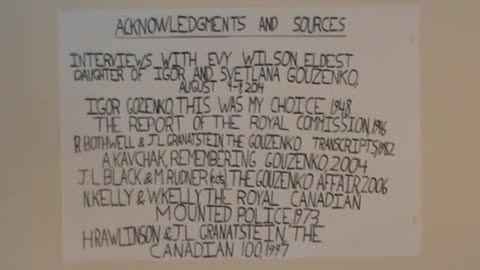 ACKNOWLEDGMENTS AND SOURCES
INTERVIEWS WITH EVY WILSON ELDEST
DAUGHTER OF IGOR AND SVETLANA GOUZENKO,
AUGUST 4-9, 2014
IGOR GOZENKO, THIS WAS MY CHOICE 1948
THE REPORT OF THE ROYAL COMMISSION, 1946
R BOTHWELL & J.L. GRANATSTEIN, THE GOUZENKO TRANSCRIPTS, 1982
A. KAVCHAK, REMEMBERING GOUZENKO 2004
J. L. BLACK & M RUDNER (eds), THE GOUZENKO AFFAIR, 2006
N. KELLY & W. KELLY THE ROYAL CANADIAN
MOUNTED POLICE, 1973
H. RAWLINSON & J.L. GRANATSTEIN, THE
CANADIAN 100, 1997